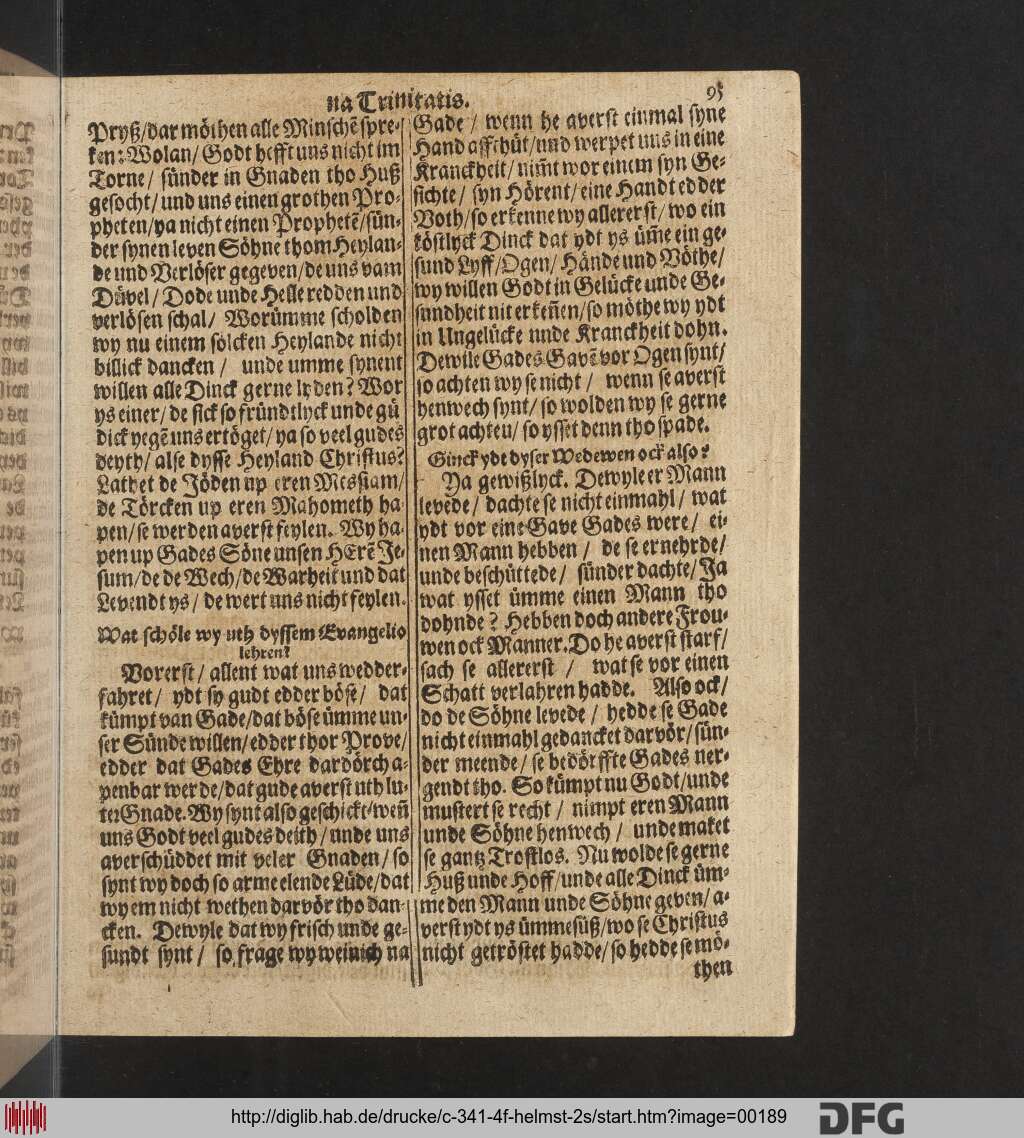 na Trinitatis.
95
Pryß/dar möthen alle Minschē spre-
ken: Wolan/ Godt hefft uns nicht im
Torne/ sünder in Gnaden tho Huß
gesocht/ und uns einen grothen Pro-
pheten/ya nicht einen Prophetē/sün-
der synen leven Söhne thom Heylan-
de und Verlöser gegeven/de uns vam
Düvel/ Dode unde Helle redden und
verlösen schal/ Worümme scholden
wy nu einem solcken Heylande nicht
billick dancken/ unde umme synent
willen alle Dinck gerne lyden? Wor
ys einer/ de sick so fründtlyck unde gü
dick yegē uns ertöget/ ya so veel gudes
deyth/ alse dysse Heyland Christus?
Lathet de Jöden up eren Messiam/
de Törcken up eren Mahometh ha-
pen/se werden averst feylen. Wy ha-
pen up Gades Söne unsen HErē Je-
sum/de de Wech/de Warheit und dat
Levendt ys/ de wert uns nicht feylen.
Wat schöle wy uth dyssem Evangelio
lehren?
Vorerst/ allent wat uns wedder-
fahret/ ydt sy gudt edder böse/ dat
kümpt van Gade/dat böse ümme un-
ser Sünde willen/edder thor Prove/
edder dat Gades Ehre dardörch a-
penbar werde/dat gude averst uth lu-
ter Gnade. Wy synt also geschickt/weñ
uns Godt veel gudes deith/ unde uns
averschüddet mit veler Gnaden/ so
synt wy doch so arme elende Lüde/dat
wy em nicht wethen darvör tho dan-
cken. Dewyle dat wy frisch unde ge-
sundt synt/ so frage wy weinich na
Gade/ wenn he averst einmal syne
Hand affthüt/und werpet uns in eine
Kranckheit/ nim̄t wor einem syn Ge-
sichte/ syn Hörent/ eine Handt edder
Voth/ so erkenne wy allererst/ wo ein
köstlyck Dinck dat ydt ys üm̄e ein ge-
sund Lyff/Ogen/ Hände und Vöthe/
wy willen Godt in Gelücke unde Ge-
sundheit nit erkeñen/so möthe wy ydt
in Ungelücke unde Kranckheit dohn.
Dewile Gades Gavē vor Ogen synt/
so achten wy se nicht/ wenn se averst
henwech synt/ so wolden wy se gerne
grot achten/ so ysset denn tho spade.
Ginck ydt dyser Wedewen ock also?
Ya gewißlyck. Dewyle er Mann
levede/ dachte se nicht einmahl/ wat
ydt vor eine Gave Gades were/ ei-
nen Mann hebben/ de se ernehrde/
unde beschüttede/ sünder dachte/ Ja
wat ysset ümme einen Mann tho
dohnde? Hebben doch andere Frou-
wen ock Manner. Do he averst starf/
sach se allererst/ wat se vor einen
Schatt verlahren hadde. Also ock/
do de Söhne levede/ hedde se Gade
nicht einmahl gedancket darvör/ sün-
der meende/ se bedörffte Gades ner-
gendt tho. So kümpt nu Godt/unde
mustert se recht/ nimpt eren Mann
unde Söhne henwech/ unde maket
se gantz Trostlos. Nu wolde se gerne
Huß unde Hoff/unde alle Dinck üm-
me den Mann unde Söhne geven/ a-
verst ydt ys ümmesüß/wo se Christus
nicht getröstet hadde/ so hedde se mö-
then
http://diglib.hab.de/drucke/c-341-4f-helmst-2s/start.htm?image=00189
DFG